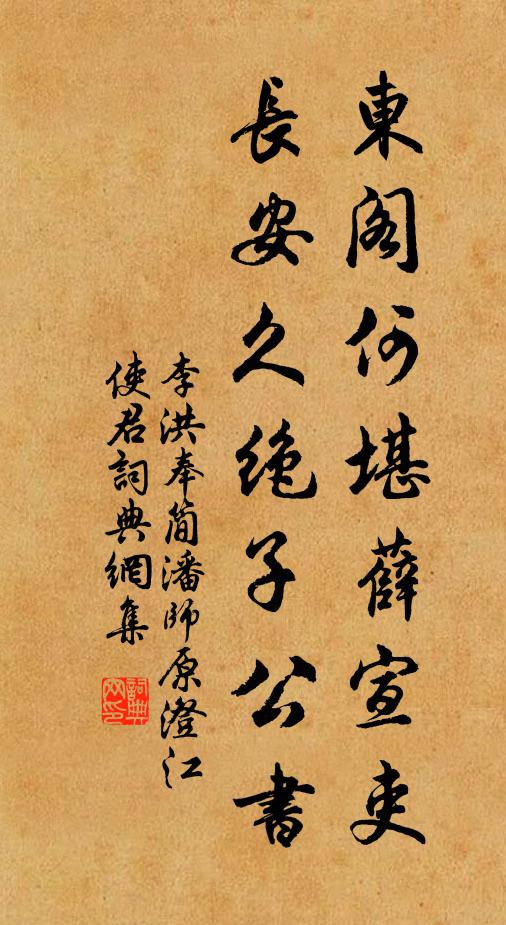 東閣何堪薛宣吏
長安久絶子公書
李洪奉簡潘師原澄江
使君詞典網集
詞典
網印